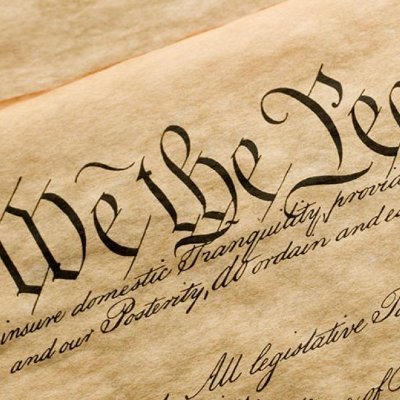 We the Pee
insure domestic Tranquility, provid
and our Posterity, do ordain and es
All legislative Po
of